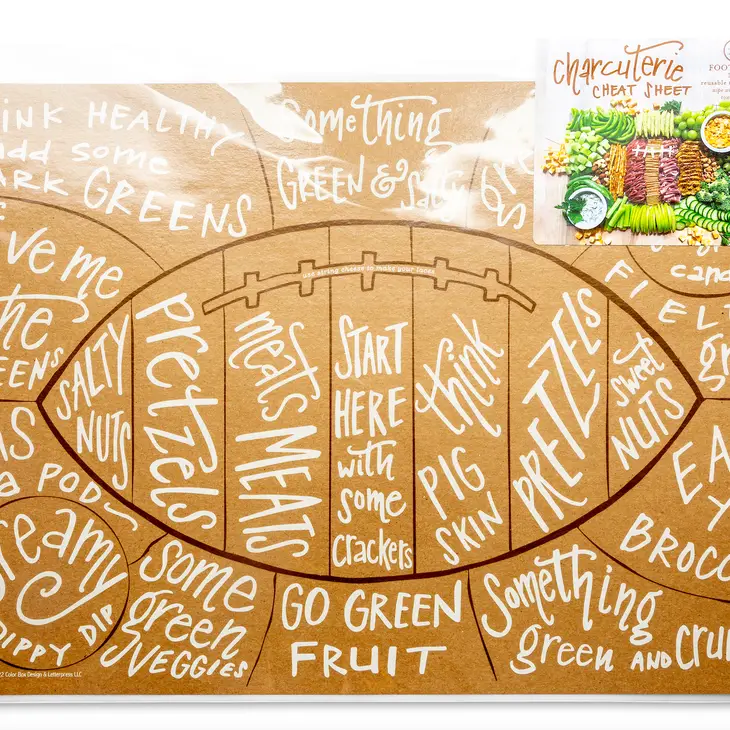 INK HEALTHY
add some
ARK GREENS
Something
GREEN & Salty
charcuterie
CHEAT SHEET
FOOT
reusable
ve me
the
EENS
use string cheese to make your laces
SALTY
NUTS
Pretzels
meats
MEATS
START
HERE
with
some
crackers
think
PIG
SKIN
PRETZELS
sweet
NUTS
cand
FIEL
gr
AS
POD
creamy
DIPPY DIP
some
green
VEGGIES
GO GREEN
FRUIT
Something
green AND cru
EA
Y
BROCC
22 Color Box Design & Letterpress LLC